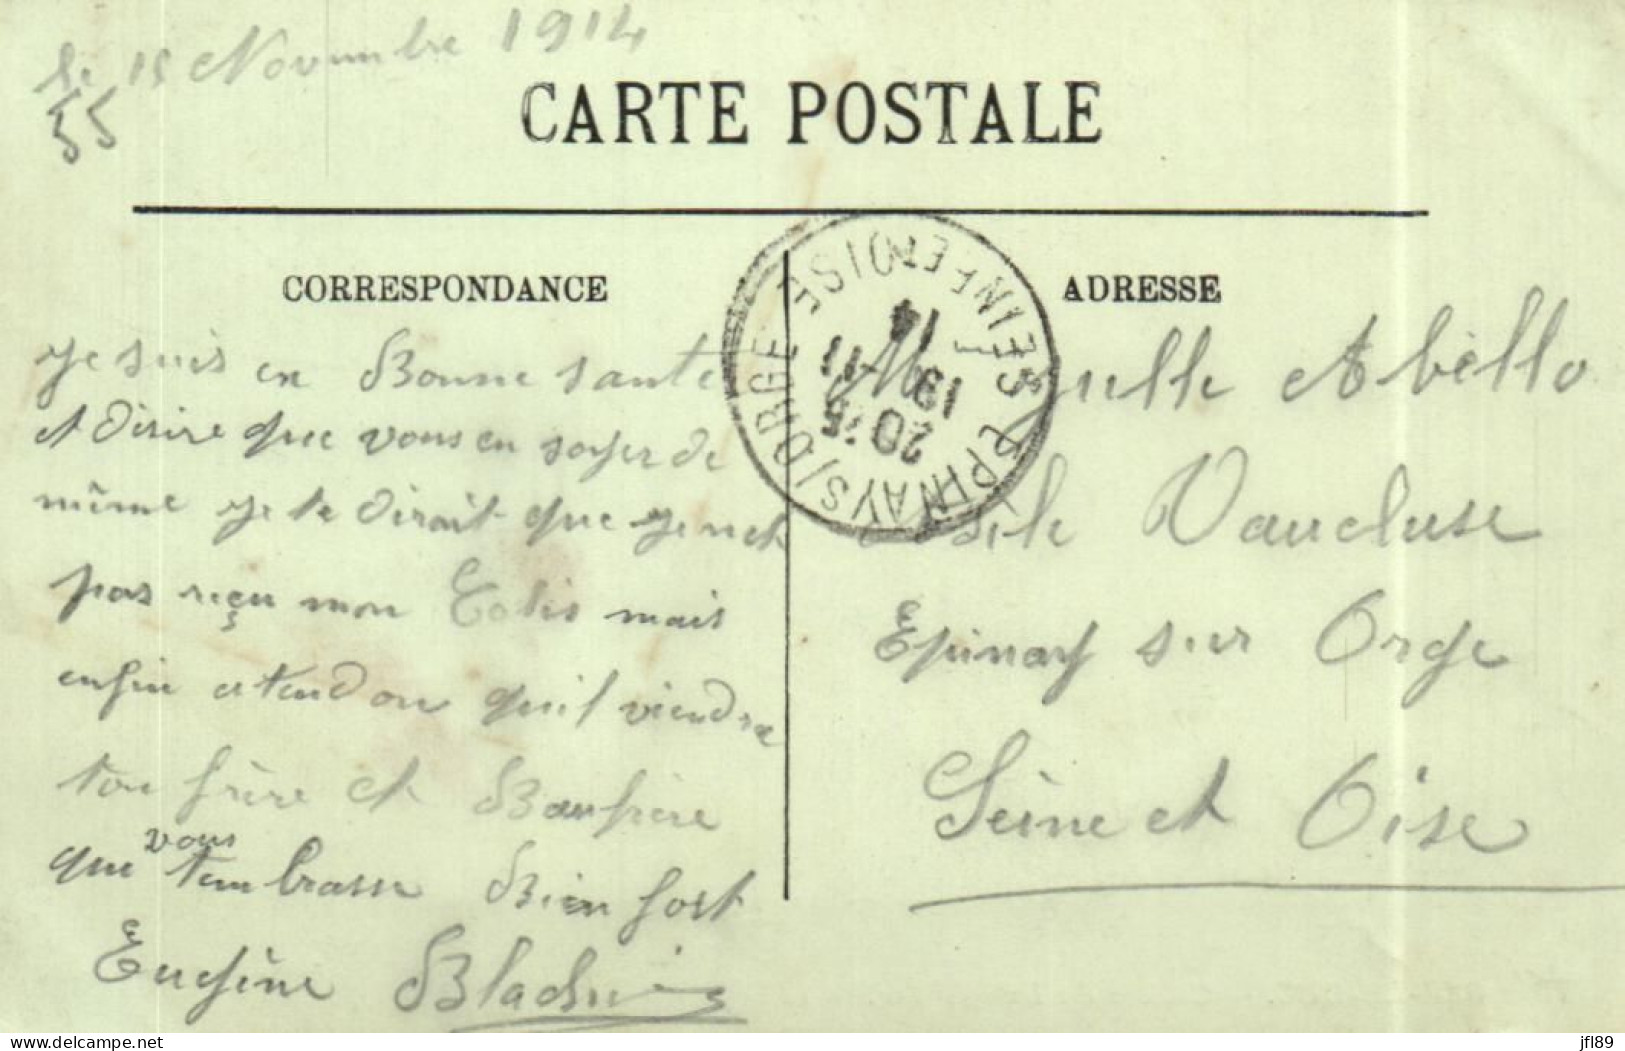 le 15 Novembre 1914
55
CARTE POSTALE
CORRESPONDANCE
je suis en Bonne santé
et désire que vous en soyer de
même je te dirait que je net
pas reçu mon Colis mais
enfin atendon qu'il viendra
ton frère et Baufrère
vous
que t'embrasse Bien fort
Eugène
EPINAY S/ORGE SEINE ET OISE
20 15
19 -11
14
ADRESSE
Abello
Asile Vaucluse
Epinay sur Orge
Seine et Oise
www.delcampe.net
jfl89